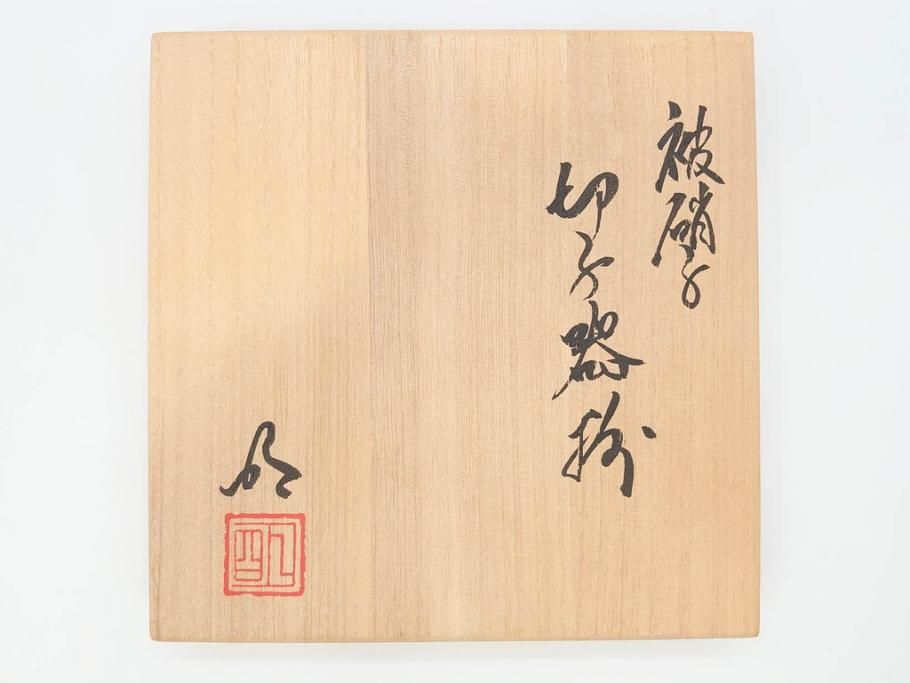 被硝子
切子器揃